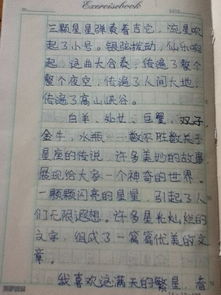 Exercisebook
三颗星星弹奏着吉它，流星吹
起了小号。银弦拨动，仙乐响
起，这曲大合奏，传遍了整个
整个夜空，传遍了人间大地，
传遍了高山峡谷。
白羊、仙女、巨蟹、双子
金牛、水瓶……数不胜数关于
星座的传说，许多美妙的故事
展现给大家一个神奇的世界。
一颗颗闪亮的星星，引起了人
们无限遐想。许多星长灿烂的
文字，组成了一篇篇优美的文
章。
我喜欢这满天的繁星，